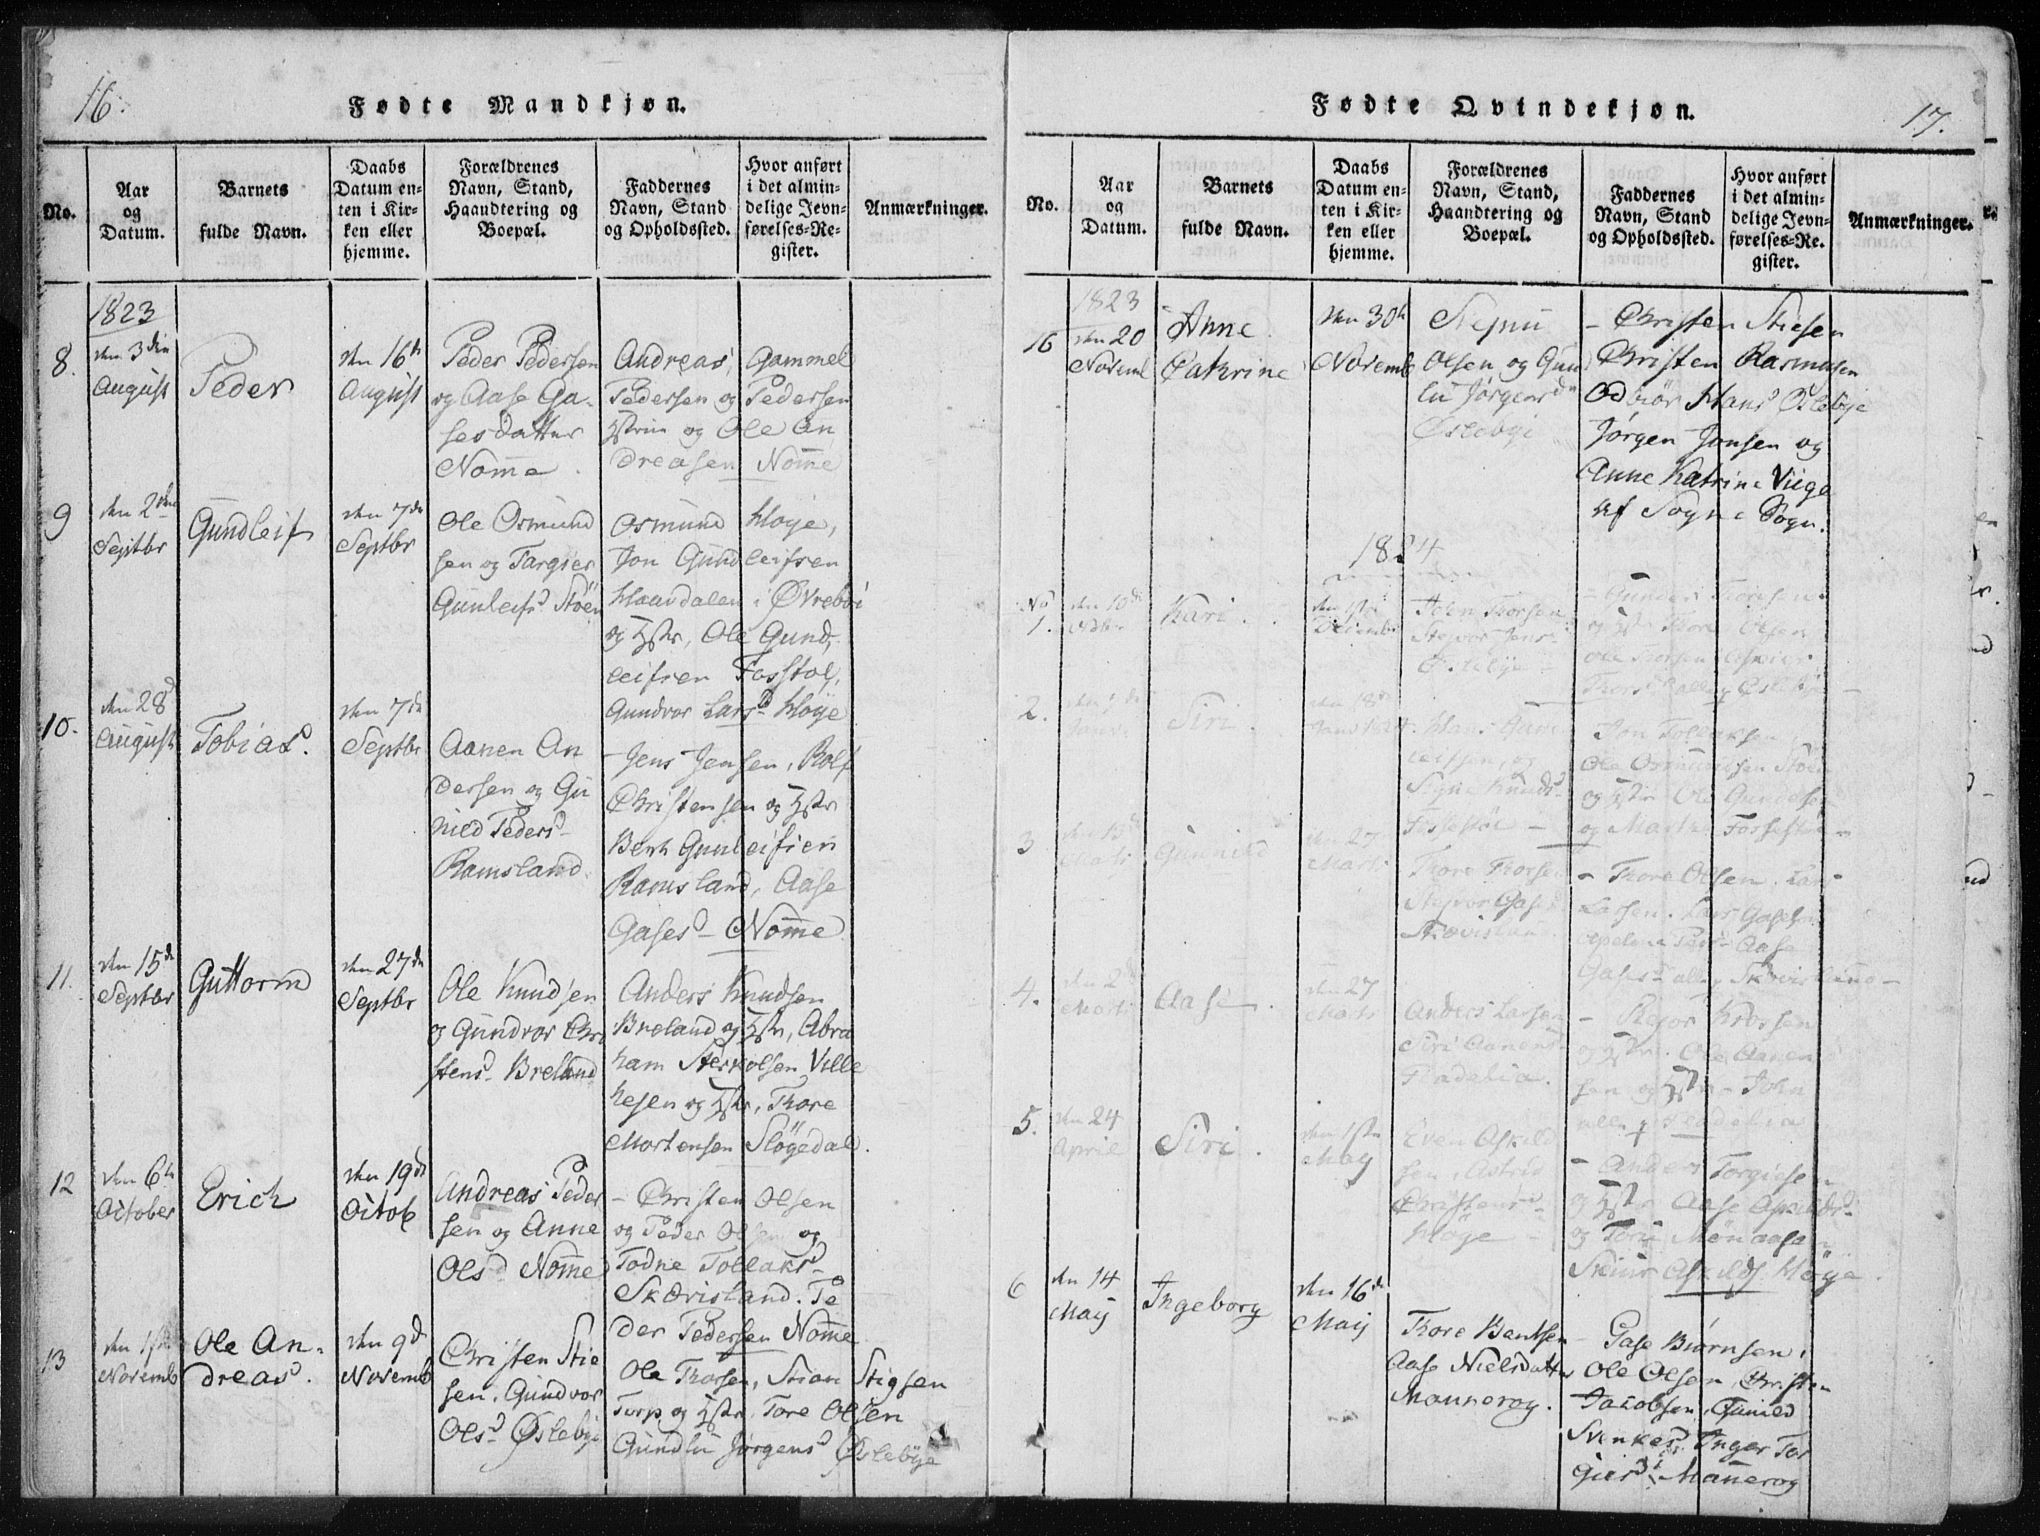 16.
Fødte Mandkjøn.
No.
Aar
og
Datum.
Barnets
fulde Navn.
Daabs
Datum en-
ten i Kir-
ken eller
hjemme.
Forældrenes
Navn, Stand,
Haandtering og
Boepæl.
Faddernes
Navn, Stand
og Opholdssted.
Hvor anført
i det almin-
delige Jevn-
førelses-Re-
gister.
Anmærkninger.
1823
8.
den 3die
August
Peder
den 16de
August
Peder Pedersen
og Aase Ga-
sesdatter
Nome.
Andreas, Gammel
Pedersen og Pedersen
og Ole An
dreasen Nome
9
den 2den
Septbr
Gundleif
den 7de
Septbr
Ole Osmund
sen og Targier
Gunleifsd Stöen
Osmund Høye,
Jon Gundleifsen
Haandalen i Øvreböi
og Hstr, Ole Gund,
leifsen Fosstöl,
Gundvor Larsd Høye
10.
den 28d
August
Tobias.
den 7de
Septbr
Aanen An
dersen og Gu
nild Pedersd
Ramsland.
- Jens Jensen, Rolf
Christensen og Hstr
Bent Gunleifsen
Ramsland, Aase
Gasesd - Nome
11.
den 15de
Septbr
Guttorm
den 27de
Septbr
Ole Knudsen
og Gundvor Chri
stensd Breland
Anders Knudsen
Breland og Hstr, Abra
ham Sterkolsen Ville
hesen og Hstr, Thore
Mortensen Slögedal.
12
den 6te
October
Erich
den 19de
Octob
Andreas Peder
sen og Anne
Olsd Nome
- Christen Olsen
og Peder Olsen og
Todne Tollaksd
Skævisland. Pe
der Pedersen Nome
13
Novemb
Ole An-
dreas.
den 9de
Novemb
Christen Stie
sen, Gundvor
Olsd Øslebye
Ole Thorsen, Stian Stigsen
Torp og Hstr, Tore Olsen
Gundlu Jørgensd Øslebye
17.
Fødte Qvindekjøn.
No.
Aar
og
Datum.
Barnets
fulde Navn.
Daabs
Datum en-
ten i Kir-
ken eller
hjemme.
Forældrenes
Navn, Stand,
Haandtering og
Boepæl.
Faddernes
Navn, Stand
og Opholdssted.
Hvor anført
i det almin-
delige Jevn-
førelses-Re-
gister.
Anmærkninger.
1823
16
den 20
Noveml
Anne
Cathrine
den 30te
Novemb
Olsen og Gun
lu Jørgensdr
Øslebye
- Christen Stiesen
Christen Rasmusen
Odbiör Hansd Øslebye
Jørgen Jonsen og
Anne Katrine Viige
af Sogne Sogn.
1824
No
1.
den 10de
Kari.
den 1ste
Decembr
Aden Thorsen
Stejvor Jensd
Øslebye
- Gunder Thorsen
og Hstr Thore Olsen
Ole Thorsen
Thorsd alle Øslebye -
2.
Janr
Siri.
den 18de
Hans Gun
leifsen, og
Signe Knudsd
Fossestöl -
Jon Tollaksen,
Ole Osmundsen Stöen
og Hstr Ole Gundelsen
og Marthe Fossestöl -
3
Marti
Gunnild
den 27
Marti
Thore Thorsen
Stejvor Gasesd
Skævisland.
- Thore Olsen. Lars
Larsen. Lars Gasesen
Aase
Gasesd alle Skævisland -
4.
den 2d
Marti
Aase.
den 27
Marti
Anders Larsen
Siri Aanensd
- Rejor Krossen
og Hstr. Ole Aanen
sen og Hstr - John
alle
5.
den 24
April
Siri.
den 1ste
May
Even Askild
sen, Astrid
Christensd
Høye -
- Anders Torgiese n
og Hstr Aase Askildsd
og Tore Mönaasen
Askilds. Høye.
6
den 14
Maij
Ingeborg
den 16de
Maij
Thore Bentsen
Aase Nielsdatter
Mannerog.
- Gase Biørnsen,
Ole Olsen, Christen
Jacobsen, Gunild
Svenkesd. Inger Tor
giersd: Manerog